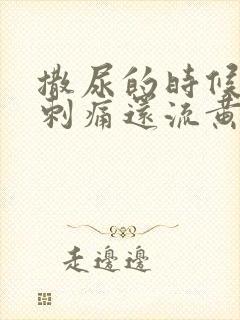 撒尿的時候
刺痛還流黃
走邊邊